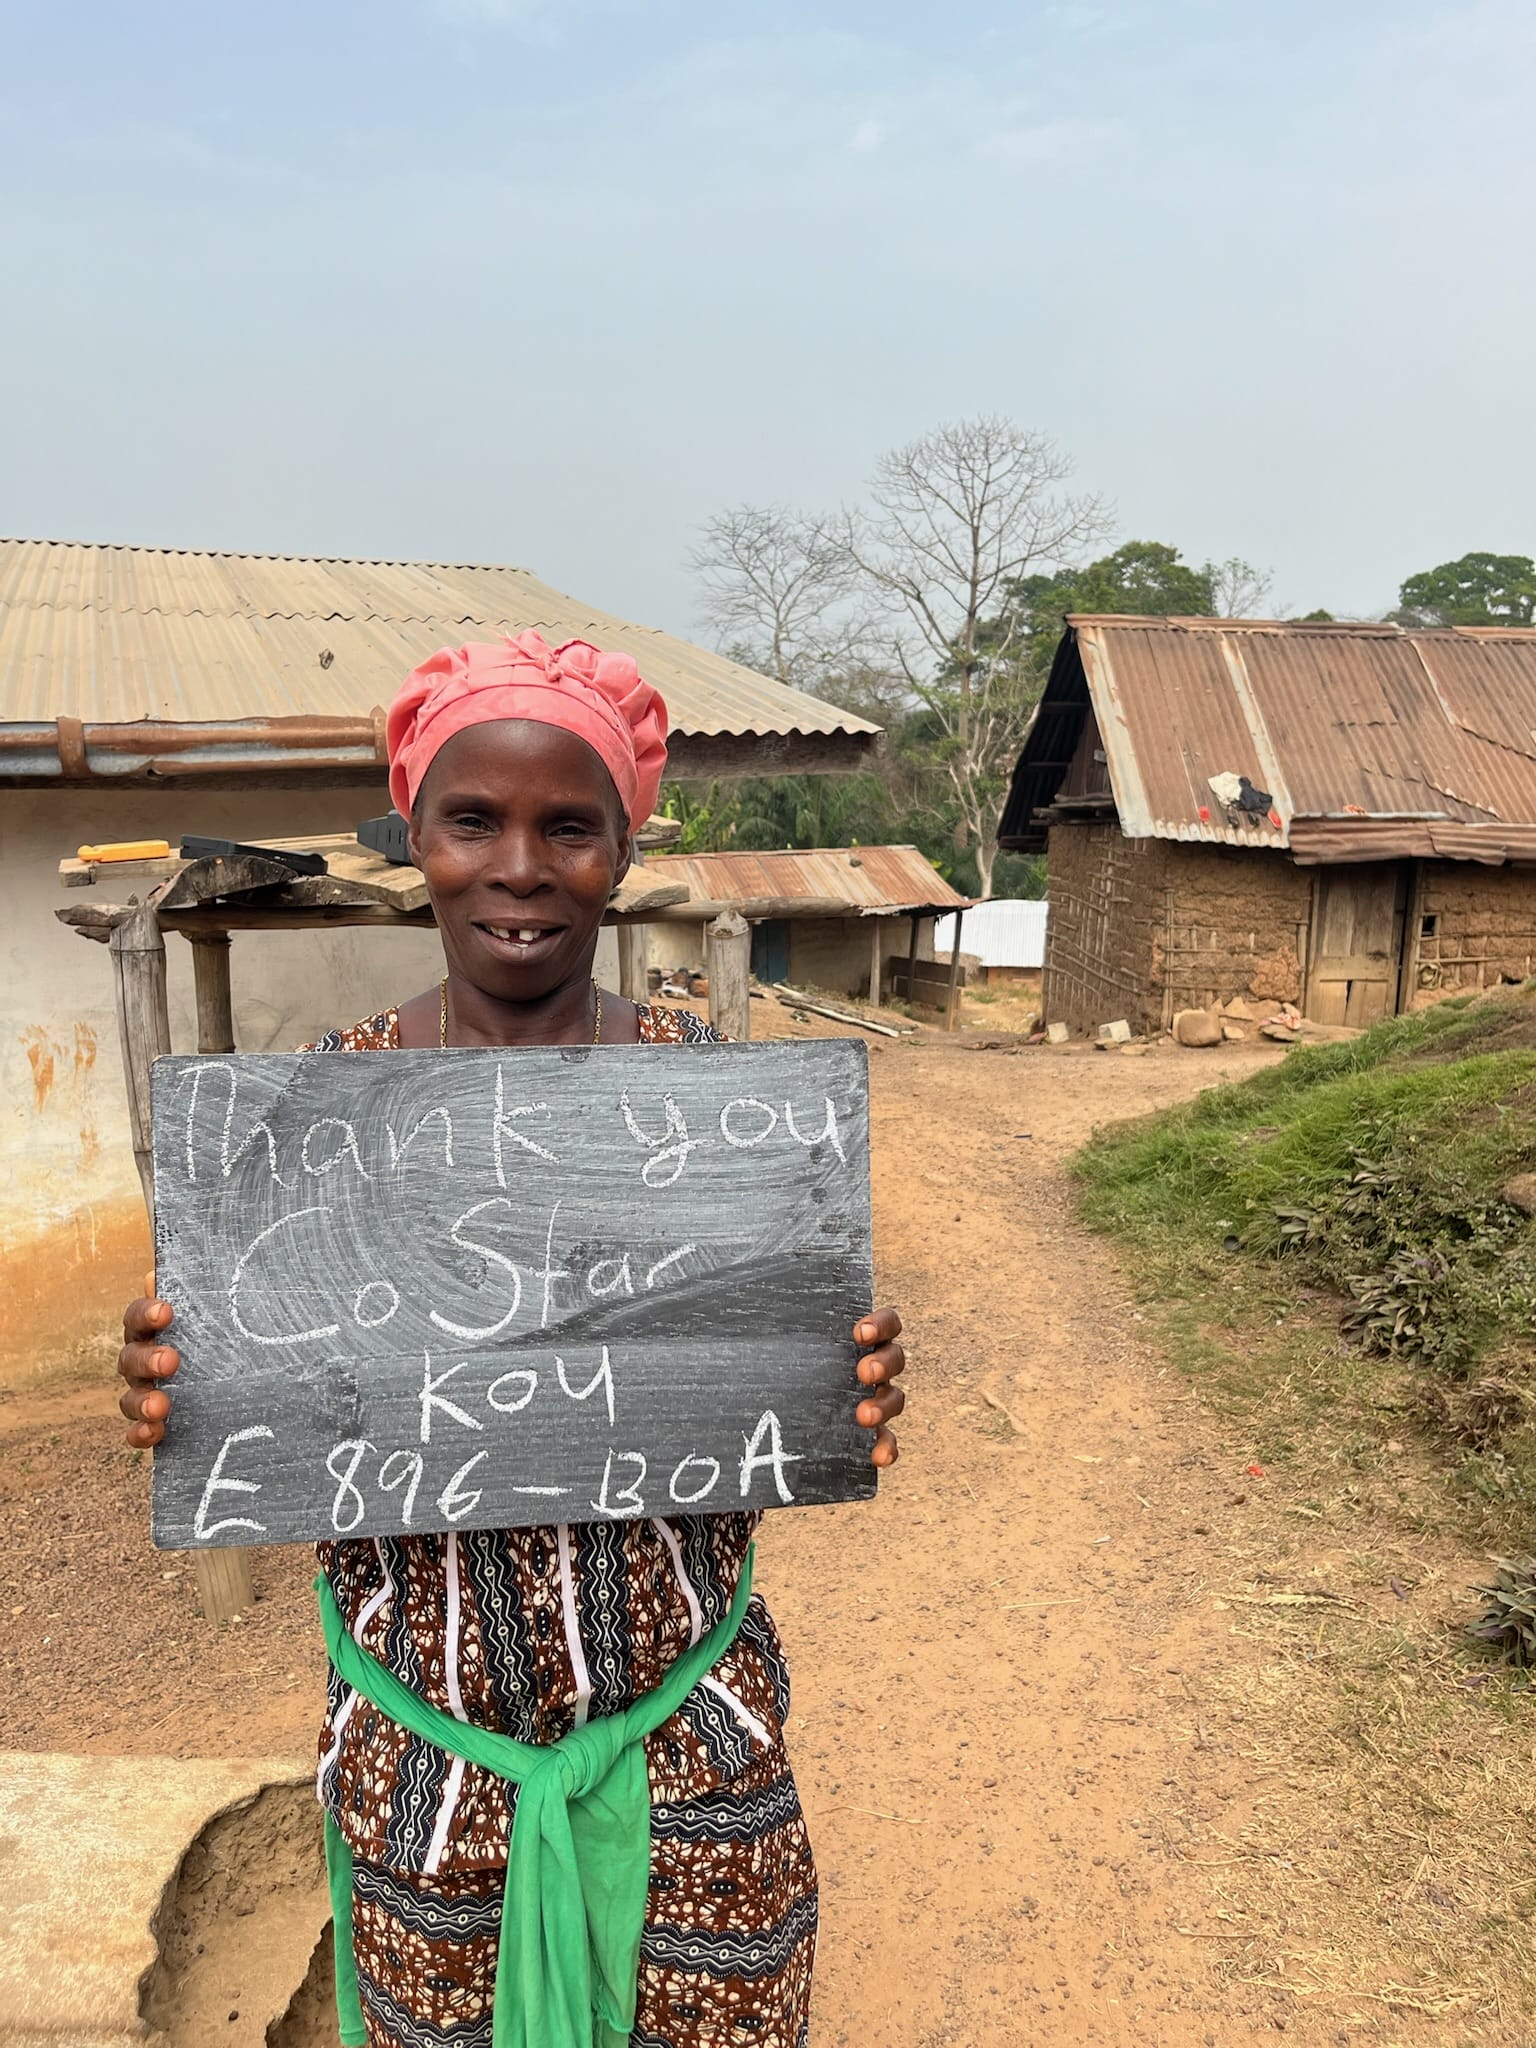 Thank you
CoStar
KOU
E 896-BOA